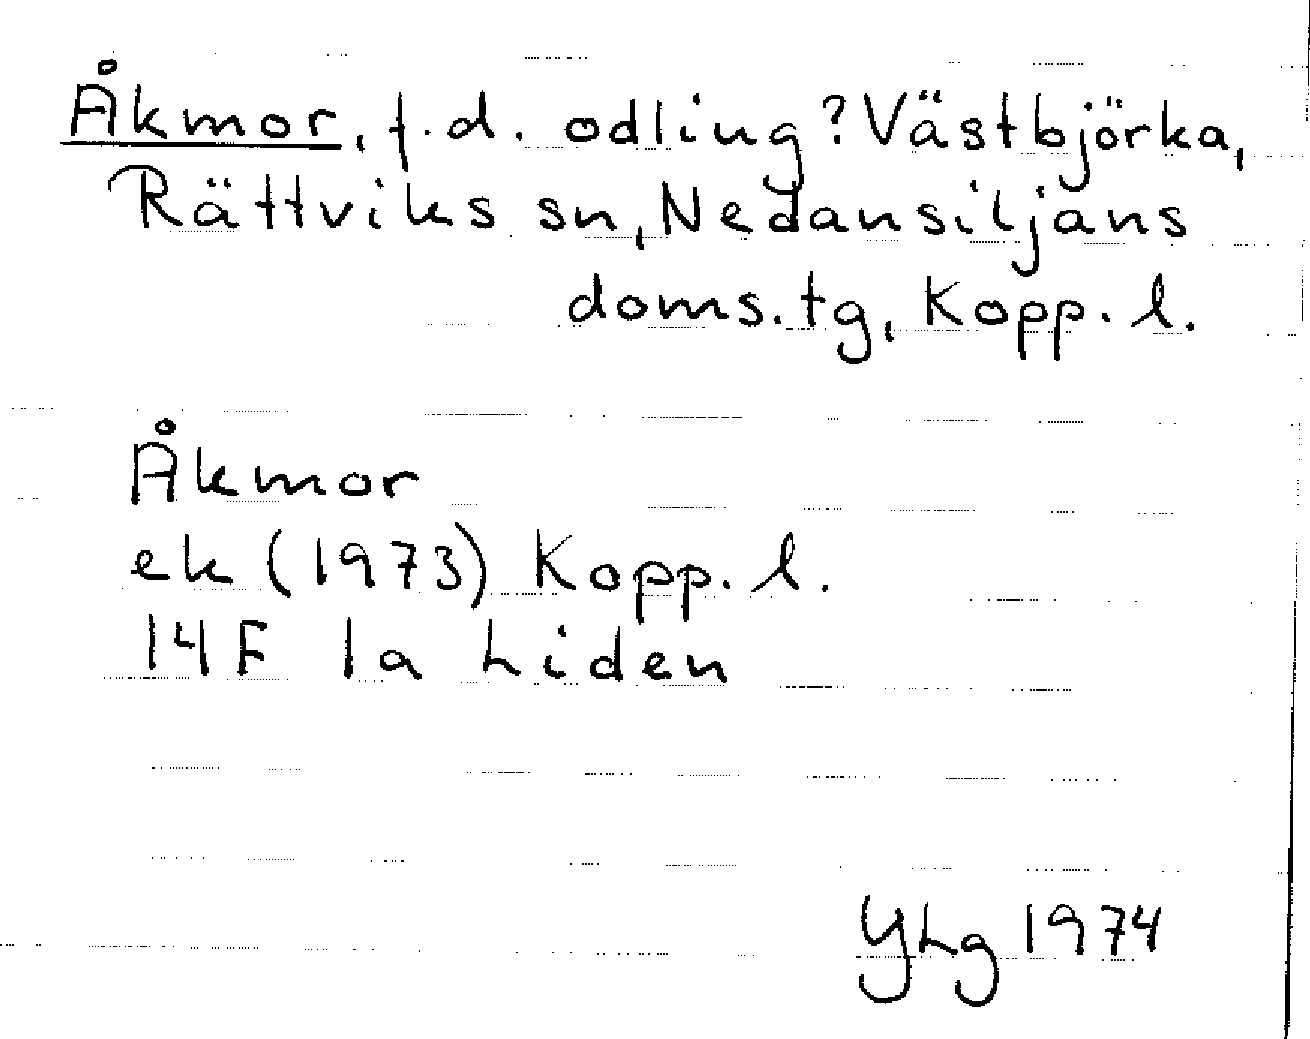 Åkmor, f.d. odling? Västbjörka,
Rättviks sn, Nedansiljans
doms.tg, Kopp. l.
Åkmor
ek (1973) Kopp. l.
14F 1a Liden
YLg 1974